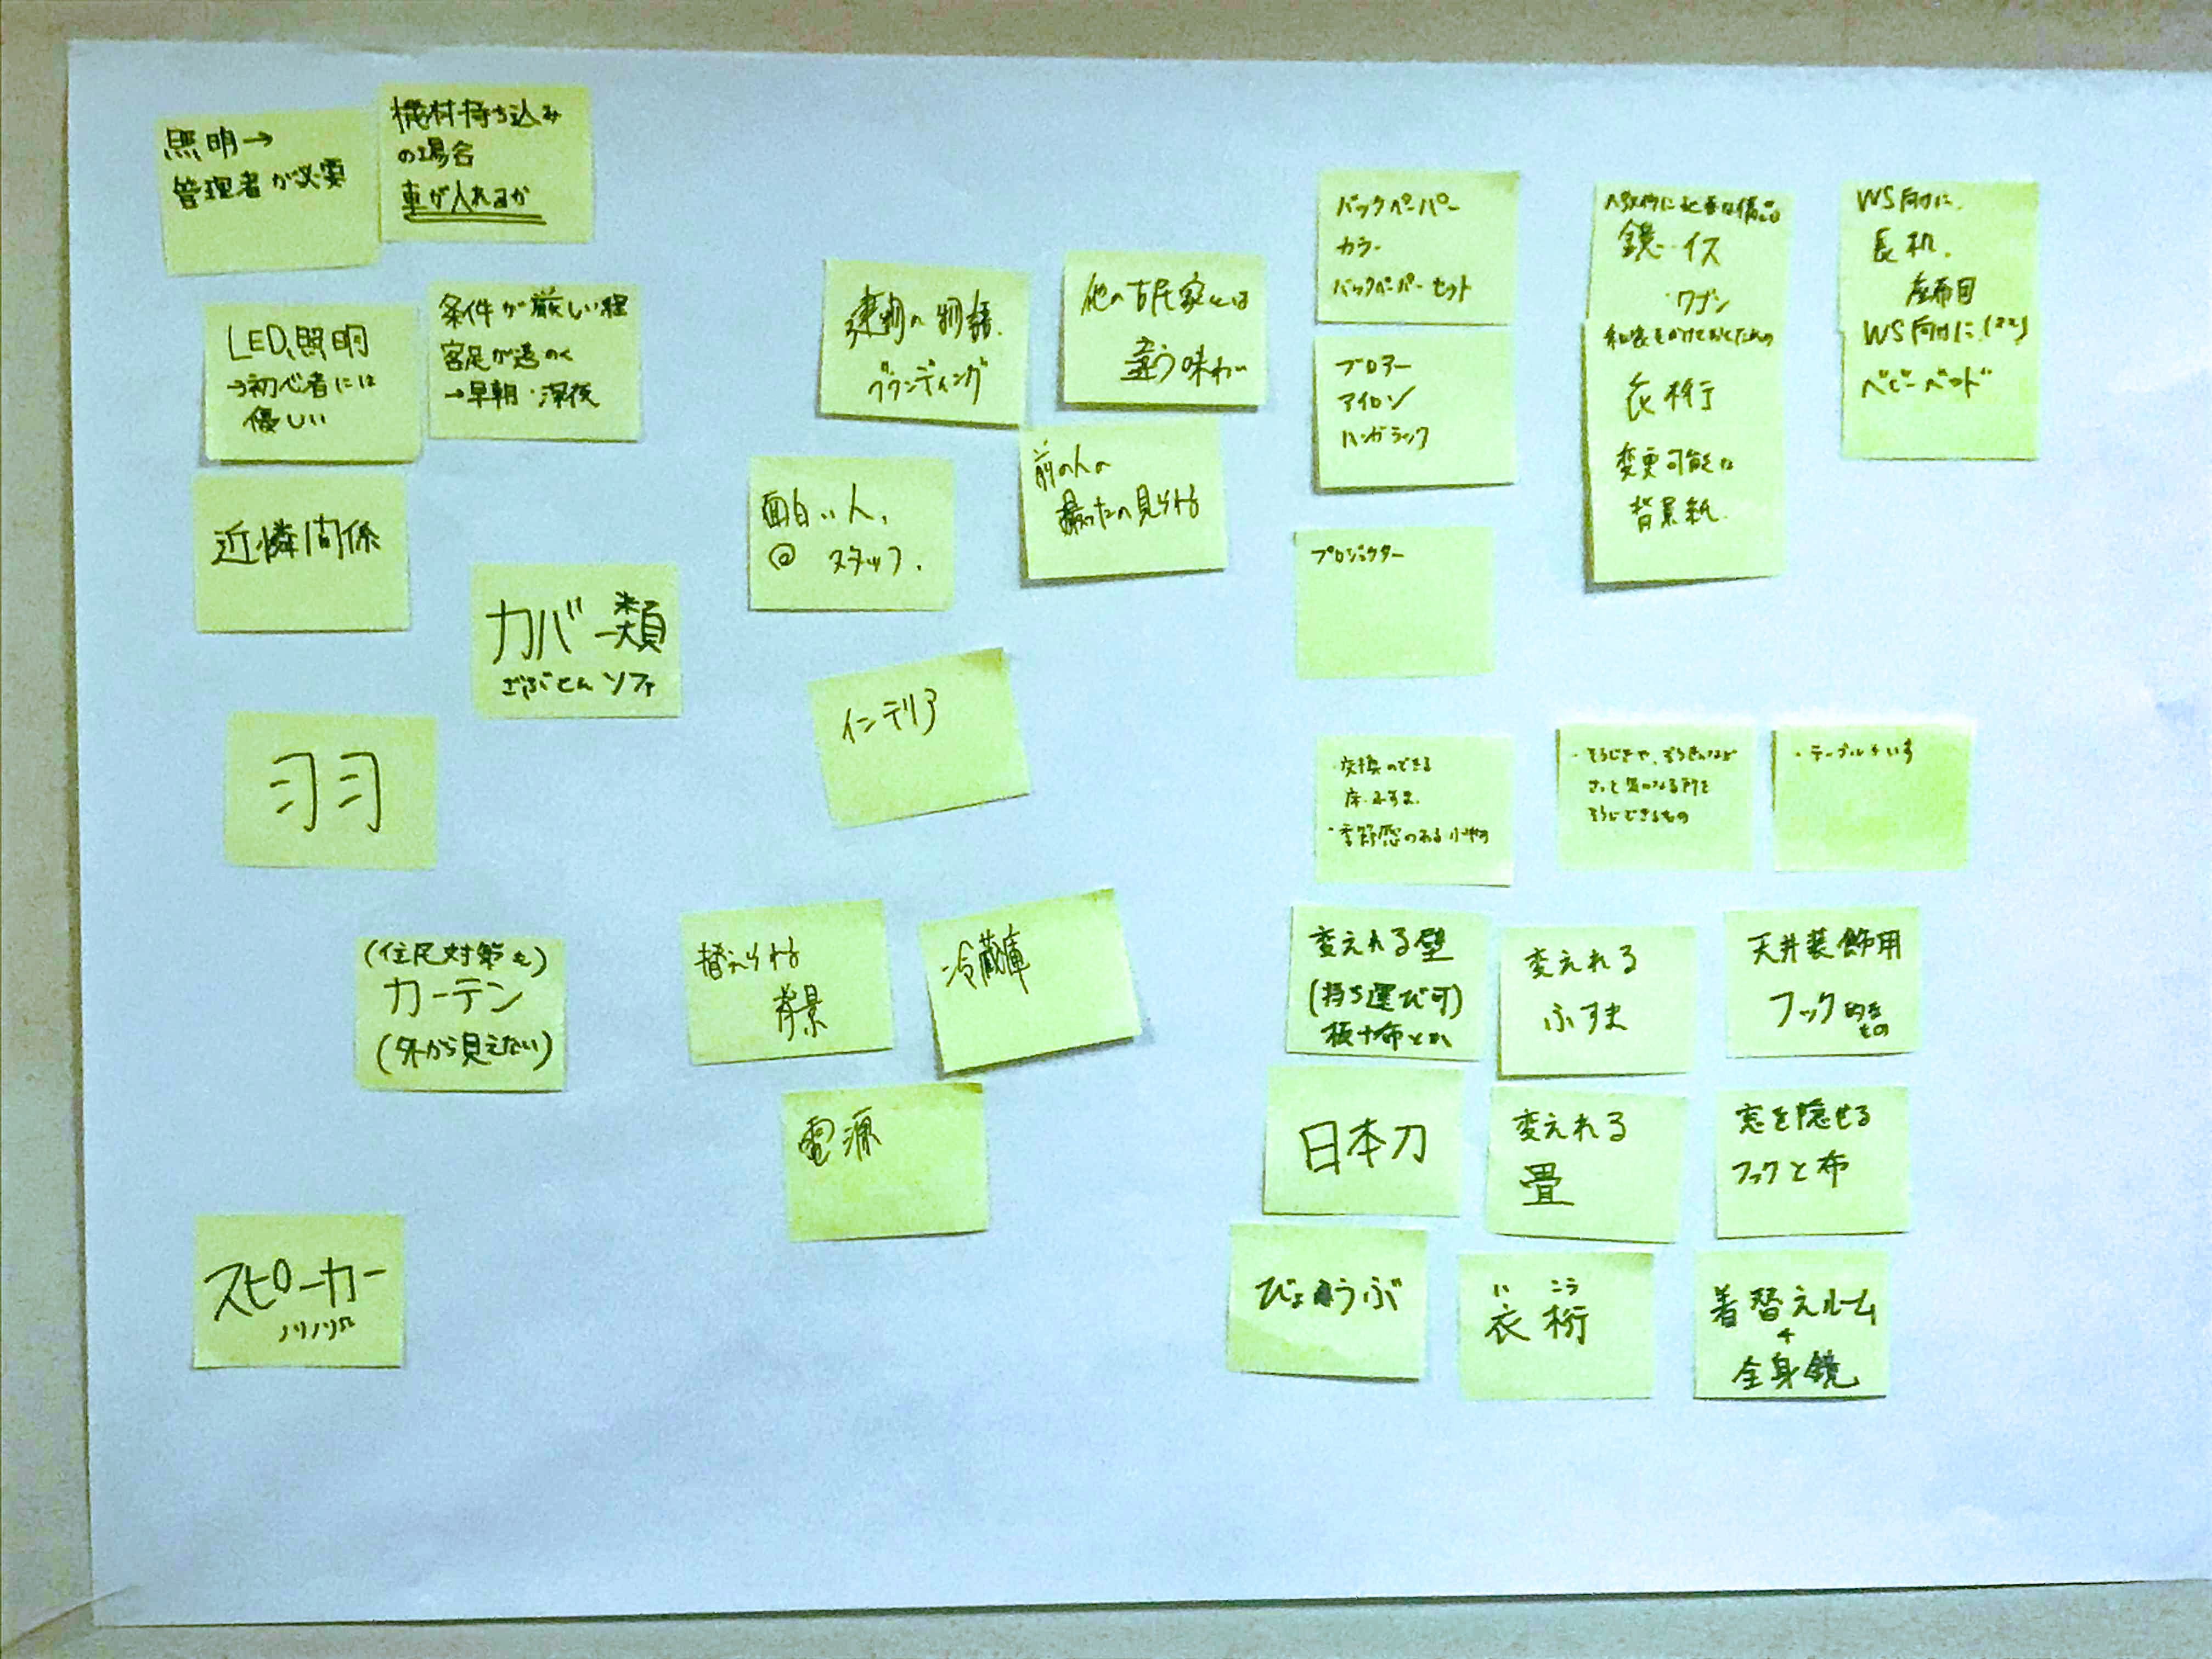 照明→
管理者が必要
機材持ち込み
の場合
車が入れるか
LED照明
→初心者には
優しい
条件が厳しい程
客足が遠のく
→早朝・深夜
近隣関係
カバー類
ざぶとん ソファ
羽
(住民対策も)
カーテン
(外から見えない)
スピーカー
ノリノリ
建物の物語
ブランディング
他の古民家とは
違う味わい
面白い人、
@ スタッフ.
前の人の
撮ったの見られる
インテリア
替えられる
背景
冷蔵庫
電源
バックペーパー
カラー
バックペーパーセット
ブロアー
アイロン
ハンガーラック
プロジェクター
鏡・イス
・ワゴン
和装をかけておくための
衣桁
変更可能な
背景紙.
WS向けに.
長机.
座布団
WS向けに
ベビーベッド
・交換のできる
床・ふすま.
・季節感のある小物
・そうじきや、ぞうきんなど
さっと気になる所を
そうじできるもの
・テーブルやいす
変えれる壁
(持ち運び可)
板+布とか
変えれる
ふすま
天井装飾用
フック的なもの
日本刀
変えれる
畳
窓を隠せる
フックと布
びょうぶ
いこう
衣桁
着替えルーム
+
全身鏡